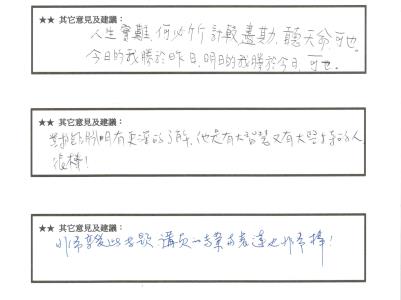 ★★ 其它意見及建議：
人生實難，何必斤計較盡勘，聽天命可也。
今日的我勝於昨日，明日的我勝於今日，可也。
★★ 其它意見及建議：
對 明有更深的了解，他是有大智慧又有大學 的人
很棒！
★★ 其它意見及建議：
非常享受此專題，講員 專業 表達也非常棒！